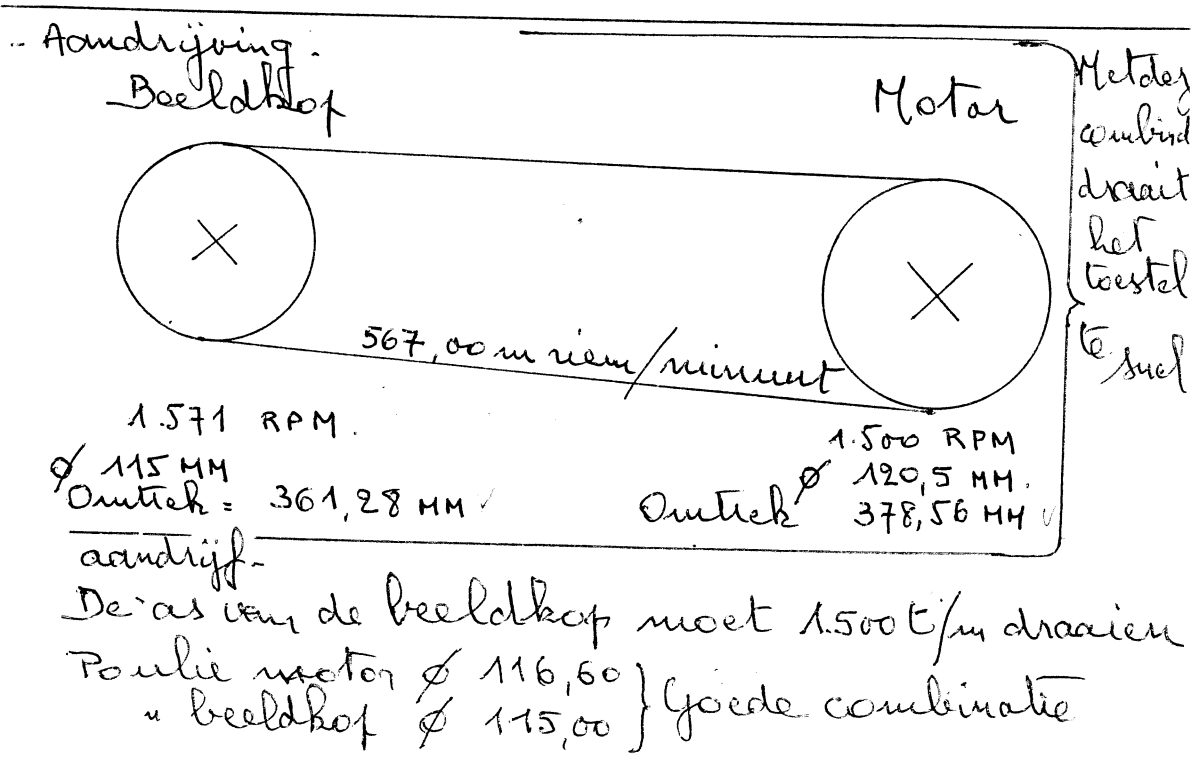 Aandrijving.
Beeldkop
Motor
Met dez
combind
draait
het
toestel
te snel
567,00 m riem/minuut
1.571 RPM.
ø 115 MM
Omtrek = 361,28 MM
1.500 RPM
ø 120,5 MM.
Omtrek 378,56 MM
aandrijf-
De as van de beeldkop moet 1.500 t/m draaien
Poulie motor ø 116,60
" beeldkop ø 115,00
} Goede combinatie